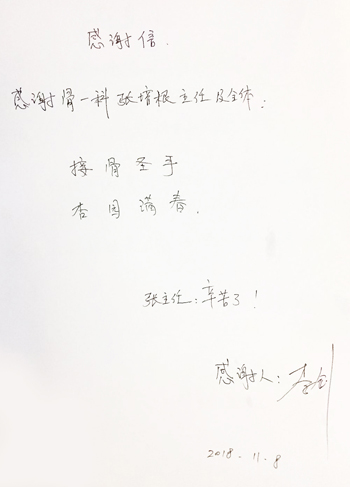 感谢信.
感谢骨一科张培根主任及全体:
接骨圣手
杏园满春.
张主任:辛苦了!
感谢人:李
2018.11.8